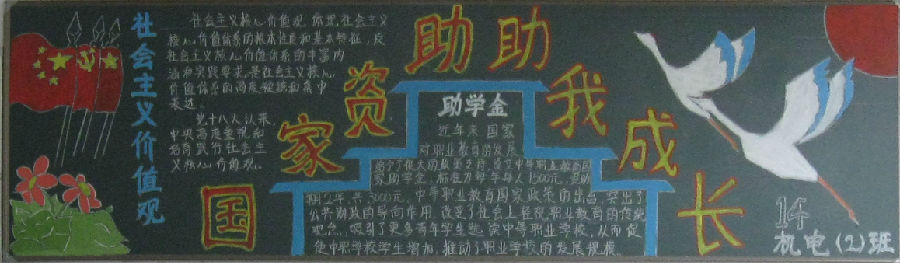 社会主义价值观
社会主义核心价值观 原理,社会主义
核心价值体系的根本性质和基本特征,反
社会主义核心价值体系的丰富内
涵和实践要求,是社会主义核心
价值体系的高度凝练和集中
表达。
党十八大以来,
中央高度重视和
培育践行社会主
义核心价值观。
国家资助助我成长
助学金
近年来国家
对职业教育的发展
给予了很大的政策支持
家助学金,标准为每年每人1500元,资助
期2年共3000元,中等职业教育国家政策的出台,突出了
公共财政的导向作用,改变了社会上轻视职业教育的传统
观念,吸引了更多青年学生就读中等职业学校,从而促
使中职学校学生增加,推动了职业学校的发展规模。
14
机电(2)班